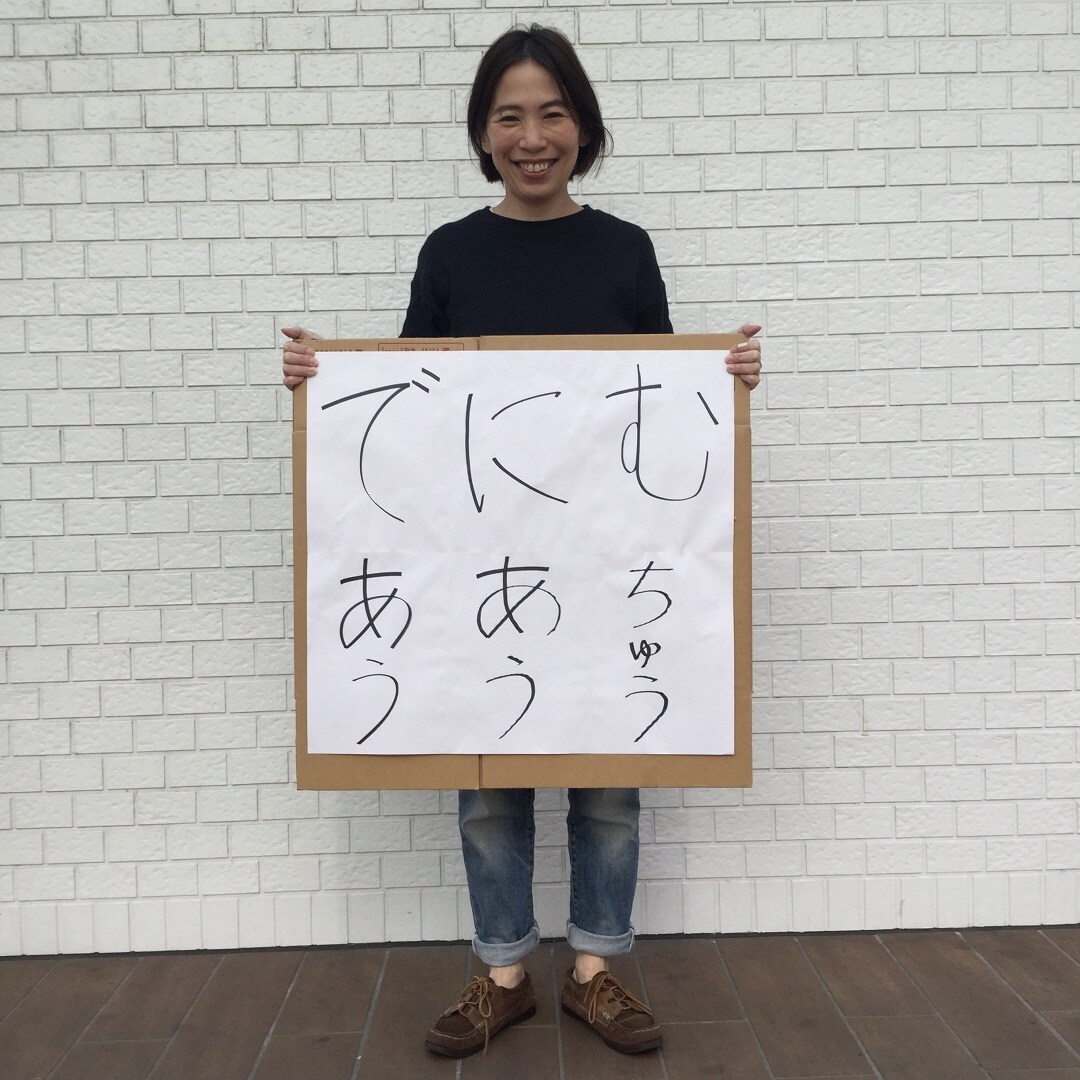 むちゅう
にあう
であう